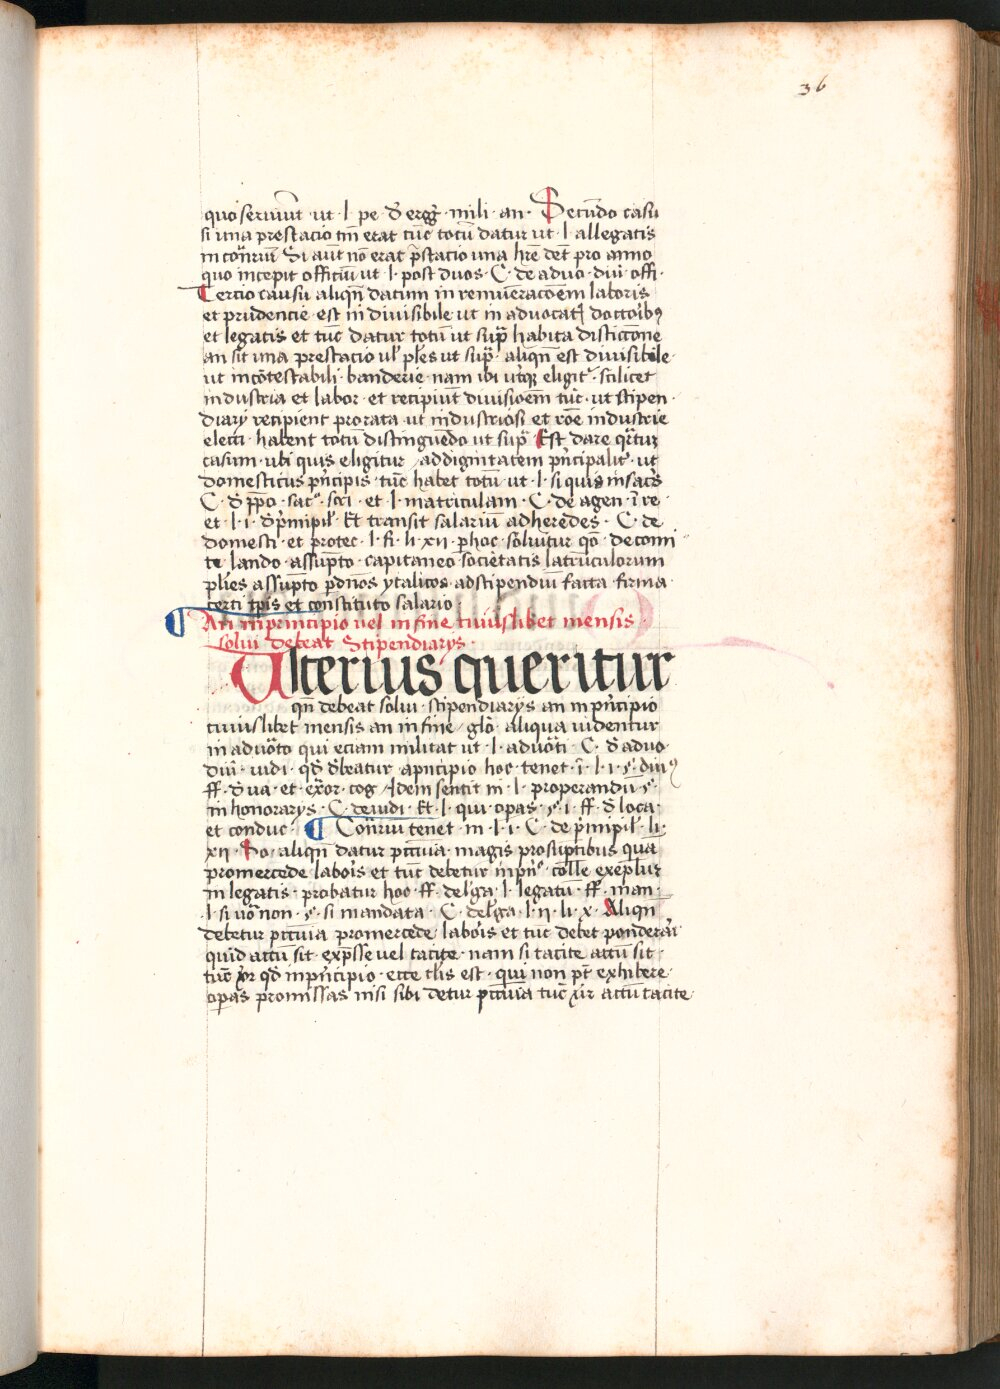 36
quo seruiūt · ut · l · pe · d̄ erog̃ · mili · an · Secūdo casu
si una prestacio tm̄ erat tūc totū datur ut · l · allegatis
in cōñriuꝫ Si aut̄ nō erat p̄stacio una hr̄e det̄ pro anno
quo incepit officiū ut · l · post duos · C · de aduo · diū · offi ·
Tercio casuu aliqn̄ datum in remuneracōem laboris
et prudencie est indiuisibile ut in aduocat doctoribꝯ
et legatis et tūc datur totū ut sup̄ habita distictione
an sit una prestacio ul̓ ples ut sup̄ · aliqn̄ est diuisibile ·
ut incōtestabili · banderie · nam ibi utqꝫ eligit̄ · scilicet
industria et labor · et recipiūt diuisioēm tūc · ut stipen ·
diary recipient prorata ut industriosi et rōe industrie
electi · habent totū distinguēdo ut sup̄ Est dare qr̄tuꝫ
casum · ubi quis eligitur · addignitatem p̄ncipalit̓ · ut
domesticus p̄ncipis · tūc habet totū ut · l · si quis insacr̄s
C · d̄ p̄po · sac̄ · scri · et · l · matriculam · C · de agen · ī re ·
et · l · i · d̄ p̄mipil̓ · Et transit salariū adheredes · C · de
domesti · et protec · l · fi · li · xii · p̱ hoc · soluitur qō · de comi
te lando · assūpto · capitaneo societatis latrūculorum
plies assūpto p̱ dn̄os ytalicos · adstipendiū facta · firma ·
certi tp̄is et constituto salario
An inprincipio uel in fine cuiuslibet mensis
solui debeat Stipendiarys ·
Ulterius queritur
qn̄ debeat solui · stipendiarys an in p̄ncipio
cuiuslibet mensis an in fine · glō · aliqua uidentur
in aduōto qui eciam militat ut · l · aduōti · C · d̄ aduo ·
diū · iudi · qd̄ d̓beatur aprincipio hoc · tenet · ī · l · i · § · diuꝯ
ff · d̄ ua · et · ex̄or · cog · Idem sentit in · l · properandū · § ·
in honorarys · C · de iudi · Et · l · qui op̱as · § · i · ff · d̄ loca ·
et conduc · Con̄riu tenet · in · l · i · C · de p̄mipil̓ · li ·
xii · So · aliqn̄ datur pccuia · magis prosūptibus qua
promercede labor̓s et tūc debetur inp̄n° · colle exēpluꝫ
in legatis · probatur hoc · ff · del̓ga · l · legatū · ff · man ·
l · si uō non · § · si mandata · C · del̓ga · l · ii · li · x · Aliqn̄
debetur pccuia promercede labor̓s et tūc debet ponderar̄
quid actū sit · exp̄sse uel tacite · nam si tacite actū sit ·
tūc qd̄ inp̄ncipio · ecce tl̓is est · qui non pt̄ exhibere ·
op̱as promissas nisi sibi detur pccuia tūc actū tacite ·